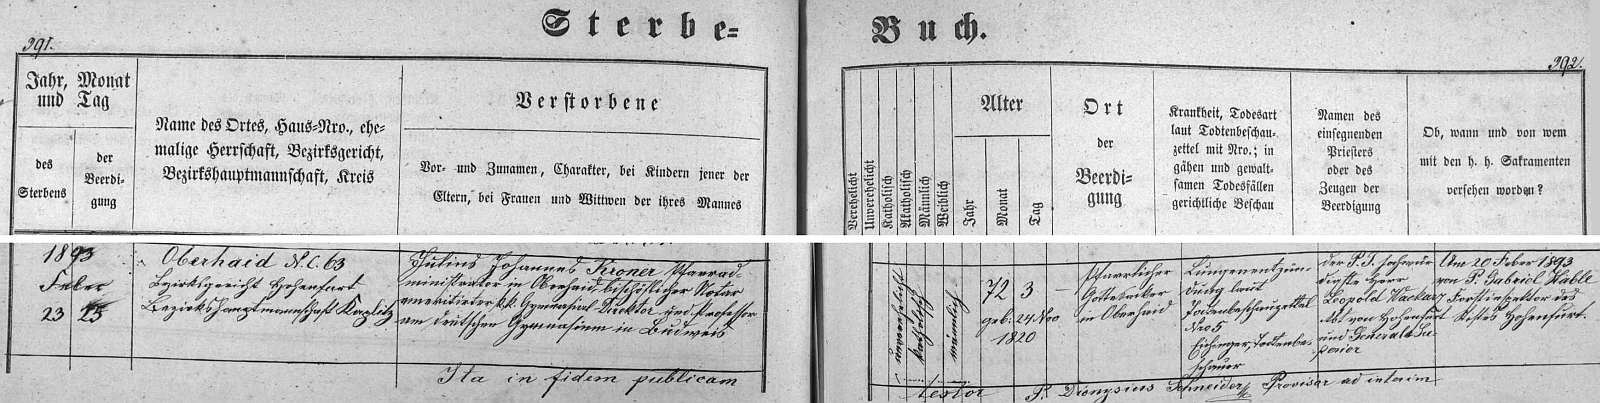 Sterbe=
Buch.
391.
392.
Jahr, Monat
und Tag
des
Sterbens
der
Beerdi-
gung
Name des Ortes, Haus=Nro., ehe-
malige Herrschaft, Bezirksgericht,
Bezirkshauptmannschaft, Kreis
Verstorbene
Vor- und Zunamen, Charakter, bei Kindern jener der
Eltern, bei Frauen und Wittwen der ihres Mannes
Verehelicht
Unverehelicht
Katholisch
Akatholisch
Männlich
Weiblich
Alter
Jahr
Monat
Tag
Ort
der
Beerdi-
gung
Krankheit, Todesart
laut Todtenbeschau-
zettel mit Nro.; in
gähen und gewalt-
samen Todesfällen
gerichtliche Beschau
Namen des
einsegnenden
Priesters
oder des
Zeugen der
Beerdigung
Ob, wann und von wem
mit den h. h. Sakramenten
versehen worden?
1893
Feber
23 25
Oberhaid N.C. 63
Bezirksgericht Hohenfurt
Bezirkshauptmannschaft Kaplitz
Julius Johannes Kroner Pfarrad-
ministrator in Oberhaid, bischöflicher Notar
emeritirter k.k. Gymnasial Direktor und Professor
am deutschen Gymnasium in Budweis
unverehelicht
katholisch
männlich
72 3 —
geb. 24. Nov
1820
Pfarrlicher
Gottesacker
in Oberhaid
Lungenentzün-
dung laut
Todtenbeschauzettel
Nro 5
Eichinger, Todtenbe-
schauer
der P.T. hochwür-
digste Herr
Leopold Wackarz
Abt von Hohenfurt
und General Su-
perior
Am 20 Feber 1893
von P. Gabriel Hable
Forstinspektor des
Stiftes Hohenfurt.
Ita in fidem publicam
testor P. Dionysius Schneider, Provisor ad interim